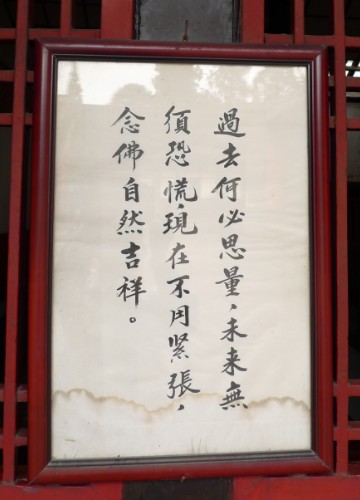 過去何必思量，未来無
須恐慌，現在不用緊張，
念佛自然吉祥。